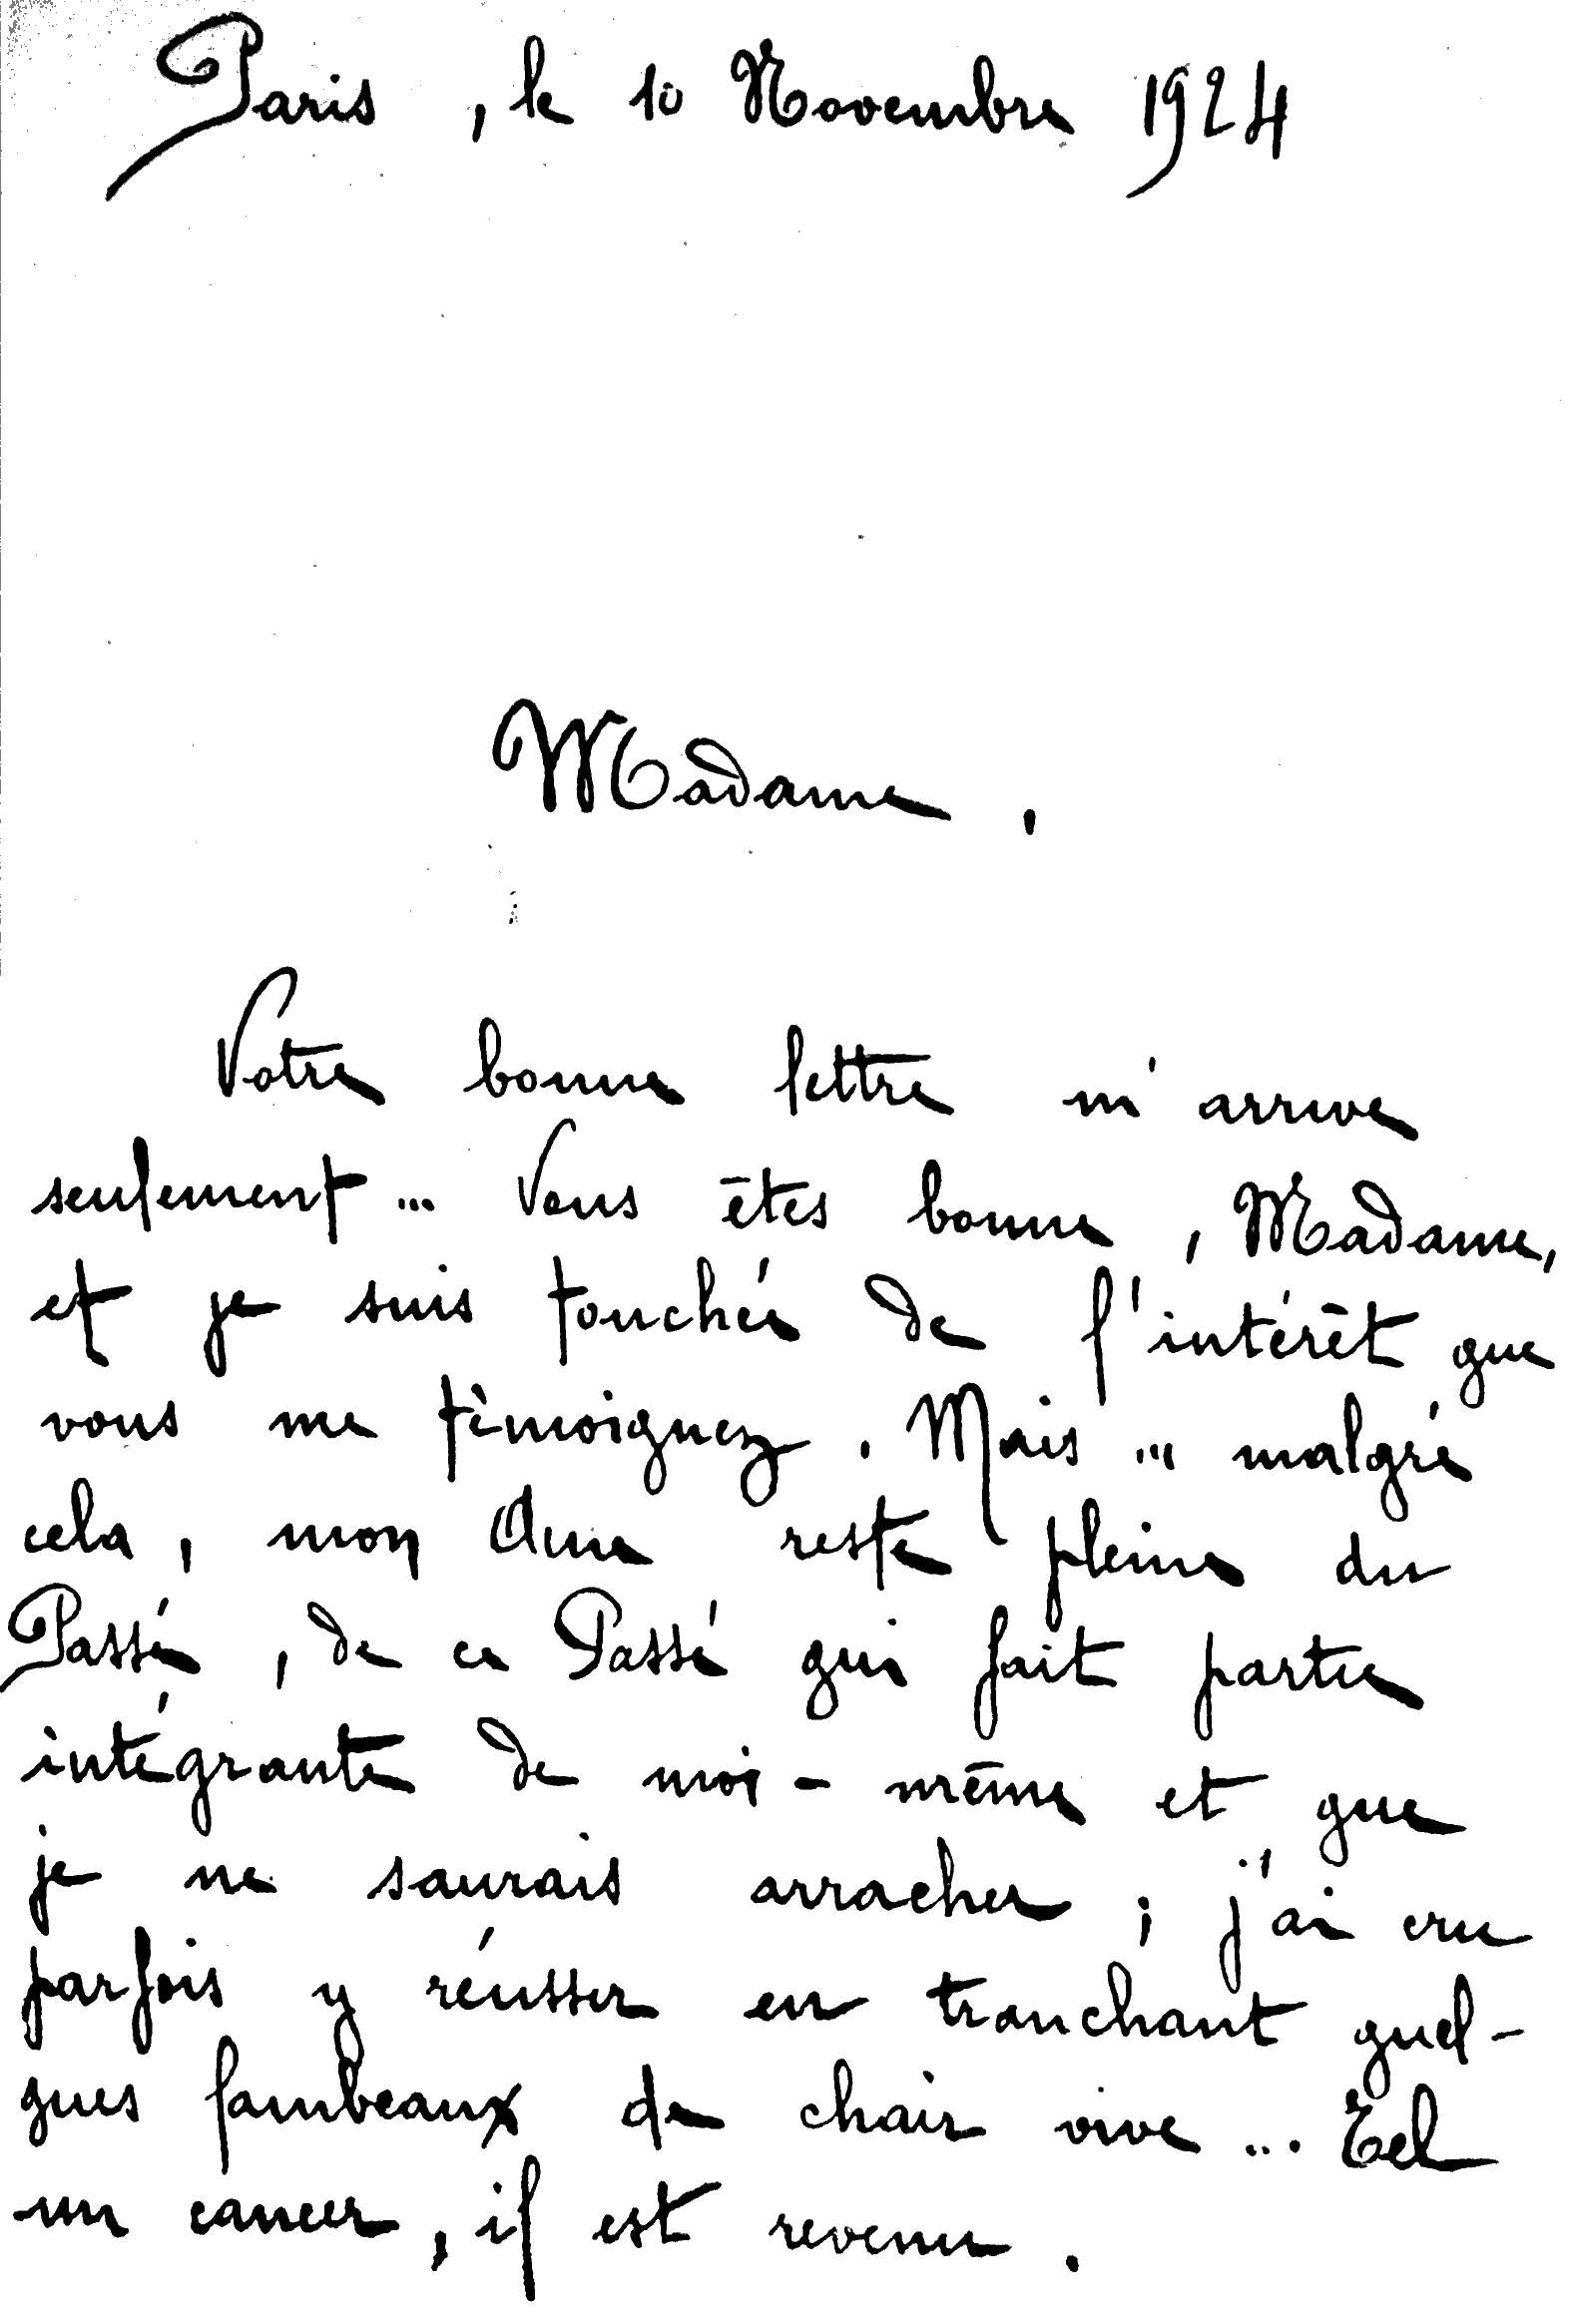 Paris, le 10 Novembre 1924
Madame,
Votre bonne lettre m'arrive
seulement... Vous êtes bonne, Madame,
et je suis touchée de l'intérêt que
vous me témoignez. Mais... malgré
cela, mon Ame reste pleine du
Passé, de ce Passé qui fait partie
intégrante de moi-même et que
je ne saurais arracher; j'ai cru
parfois y réussir en tranchant quel-
ques lambeaux de chair vive... Tel
un cancer, il est revenu.